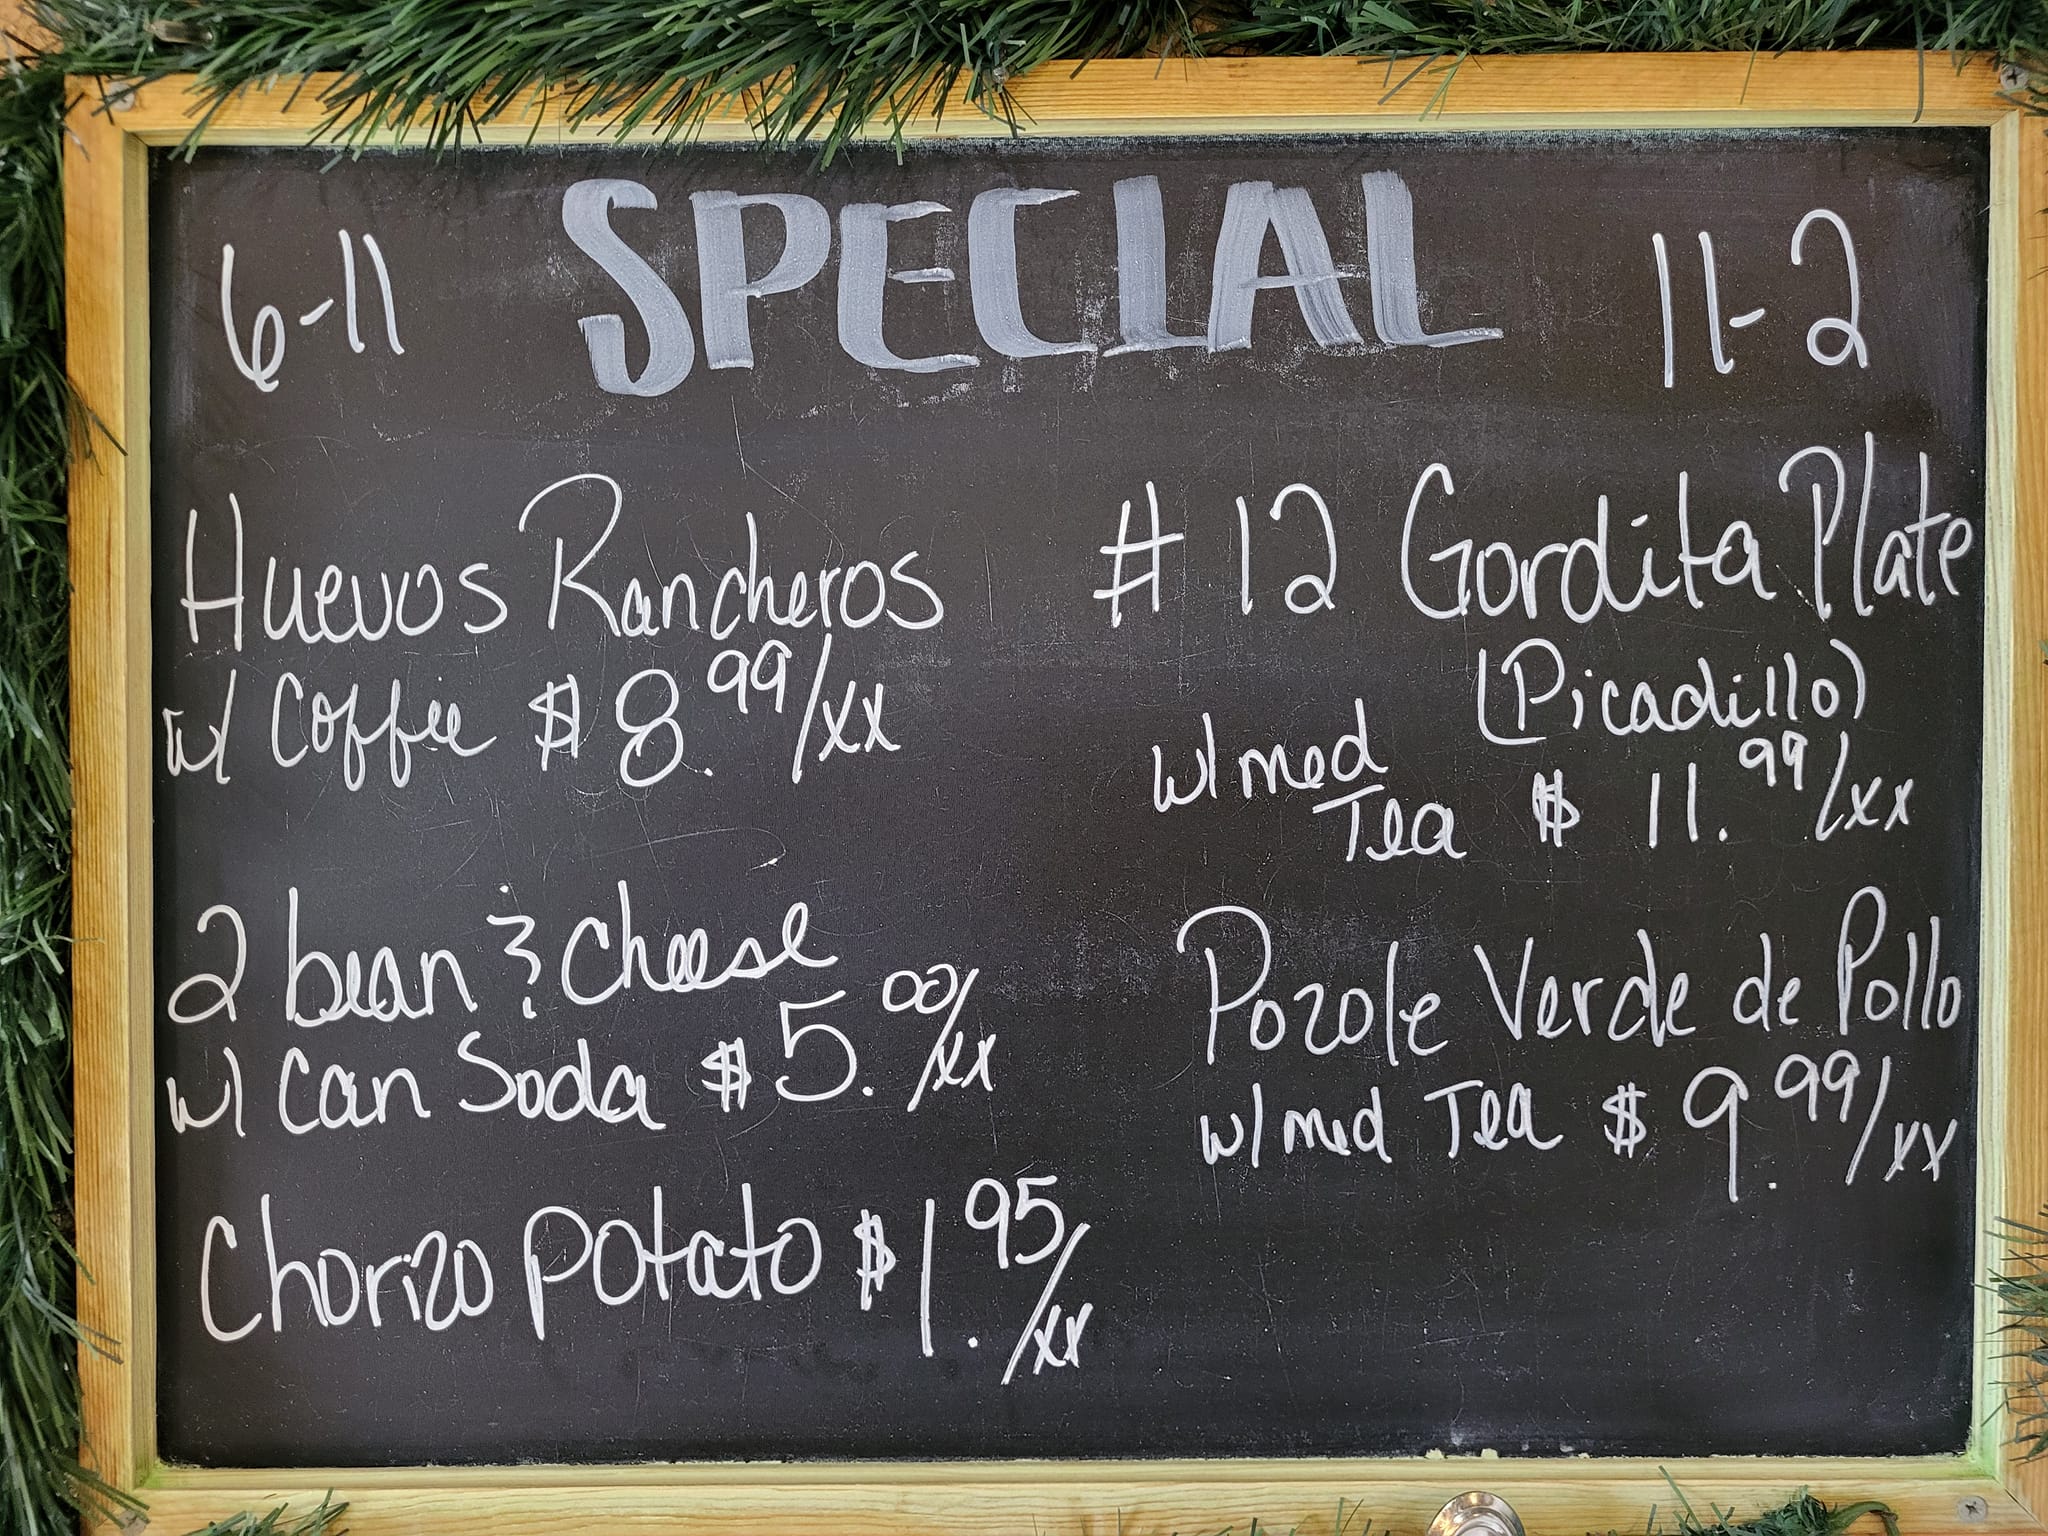 SPECIAL
6-11
Huevos Rancheros
w/ Coffee $8.99/xx
2 bean & cheese
w/ Can Soda $5.00/xx
Chorizo potato $1.95/xx
11-2
#12 Gordita Plate
(Picadillo)
w/ med
Tea $11.99/xx
Pozole Verde de Pollo
w/ med Tea $9.99/xx